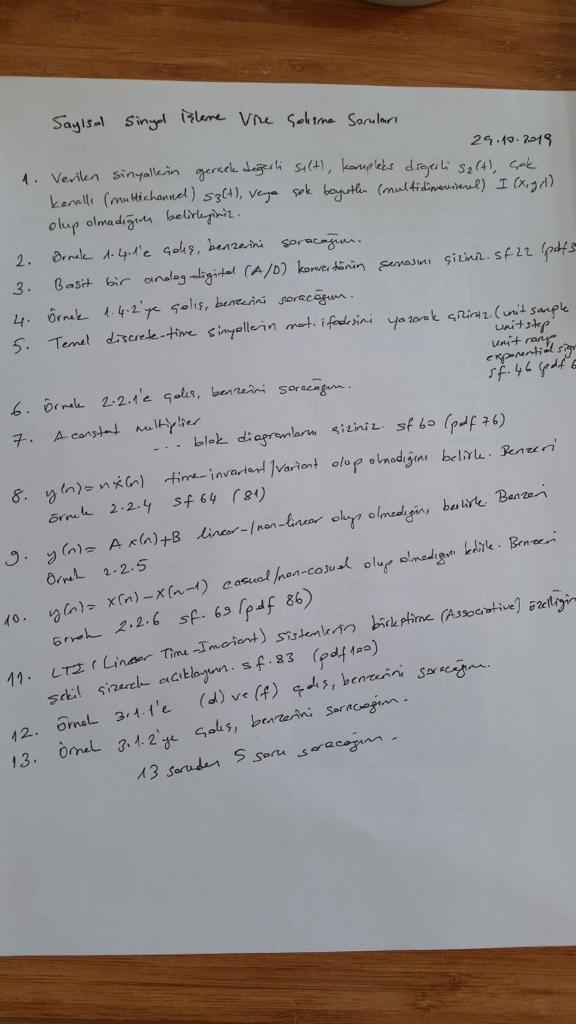 Sayısal Sinyal İşleme Vize Çalışma Soruları
29.10.2019
1. Verilen sinyallerin gerçek değerli s1(t), kompleks değerli s2(t), çok
kanallı (multichannel) s3(t), veya çok boyutlu (multidimensional) I(x,y,t)
olup olmadığını belirleyiniz.
2. Örnek 1.4.1'e çalış, benzerini soracağım.
3. Basit bir analog-digital (A/D) konvertörün şemasını çiziniz. sf.22 (pdf
4. Örnek 1.4.2'ye çalış, benzerini soracağım.
5. Temel discrete-time sinyallerin mat. ifadesini yazarak çiziniz. (unit sample
unit step
unit ramp
exponential
sf. 46 (pdf
6. Örnek 2.2.1'e çalış, benzerini soracağım.
7. A constant multiplier
... blok diagramlarını çiziniz. sf 60 (pdf 76)
8. y(n) = n x(n) time-invariant/variant olup olmadığını belirle. Benzeri
örnek 2.2.4 sf 64 (81)
9. y(n) = A x(n) + B linear-/non-linear olup olmadığını belirle. Benzeri
Örnek 2.2.5
10. y(n) = x(n) - x(n-1) casual/non-casual olup olmadığını belirle. Benzeri
örnek 2.2.6 sf. 69 (pdf 86)
11. LTI (Linear Time-Invarient) sistemlerin birleştirme (Associative) özelliğin
şekil çizerek açıklayınız. sf. 83 (pdf 100)
12. Örnek 3.1.1'e (d) ve (f) çalış, benzerini soracağım.
13. Örnek 3.1.2'ye çalış, benzerini soracağım.
13 sorudan 5 soru soracağım.